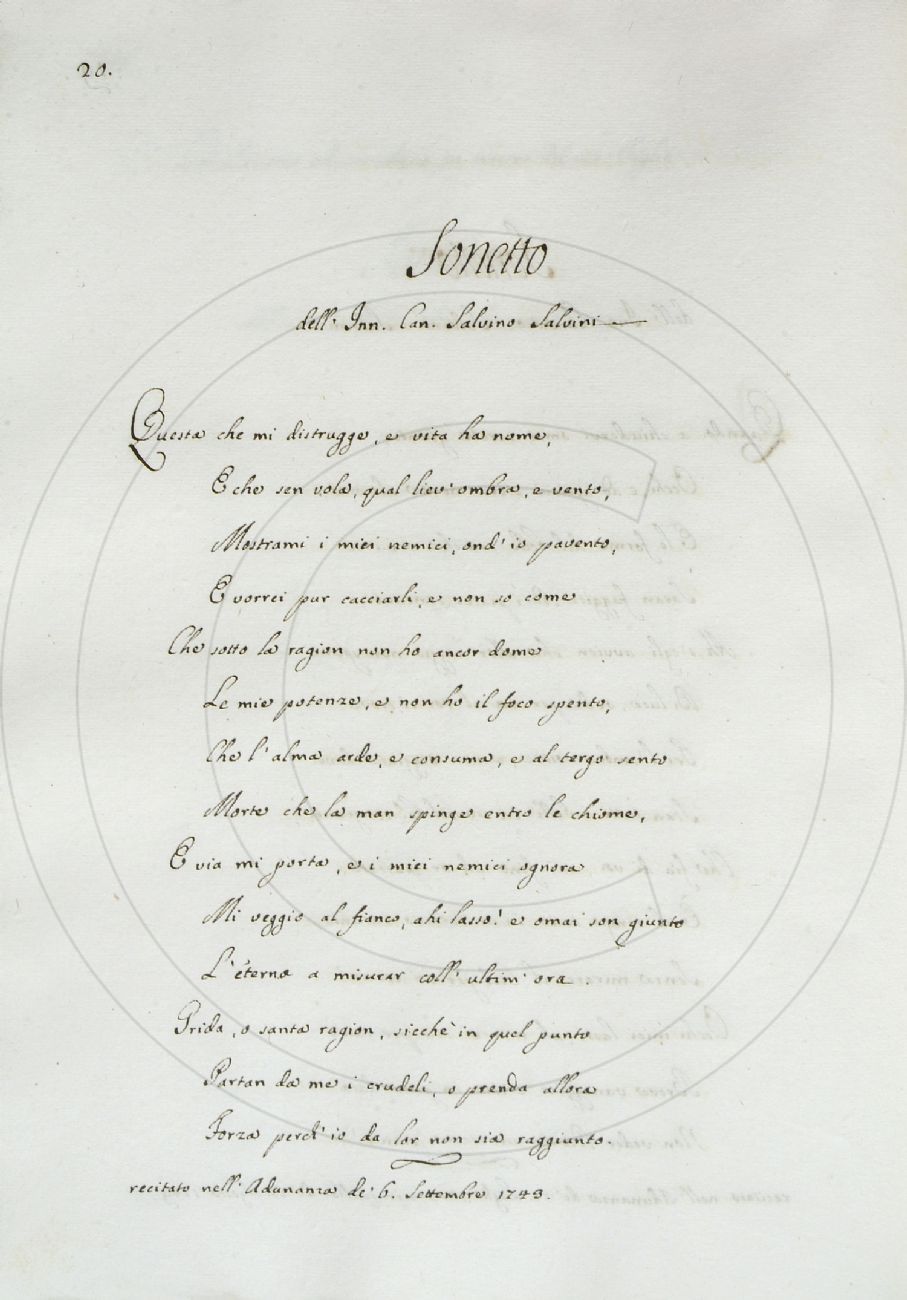 20.
Sonetto
dell'Inn. Can. Salvino Salvini
Questa che mi distrugge, e vita ha nome,
E che sen vola, qual liev'ombra, e vento,
Mostrami i miei nemici, ond'io pavento,
E vorrei pur cacciarli, e non so come
Che sotto la ragion non ho ancor dome
Le mie potenze, e non ho il foco spento,
Che l'alma arde, e consuma, e al tergo sento
Morte che la man spinge entro le chiome,
E via mi porta, e i miei nemici ognora
Mi veggio al fianco, ahi lasso! e omai son giunto
L'eterna a misurar coll'ultim'ora.
Grida, o santa ragion, sicchè in quel punto
Partan da me i crudeli, o prenda allora
Forza perch'io da lor non sia raggiunto.
recitato nell'Adunanza de' 6. Settembre 1743.